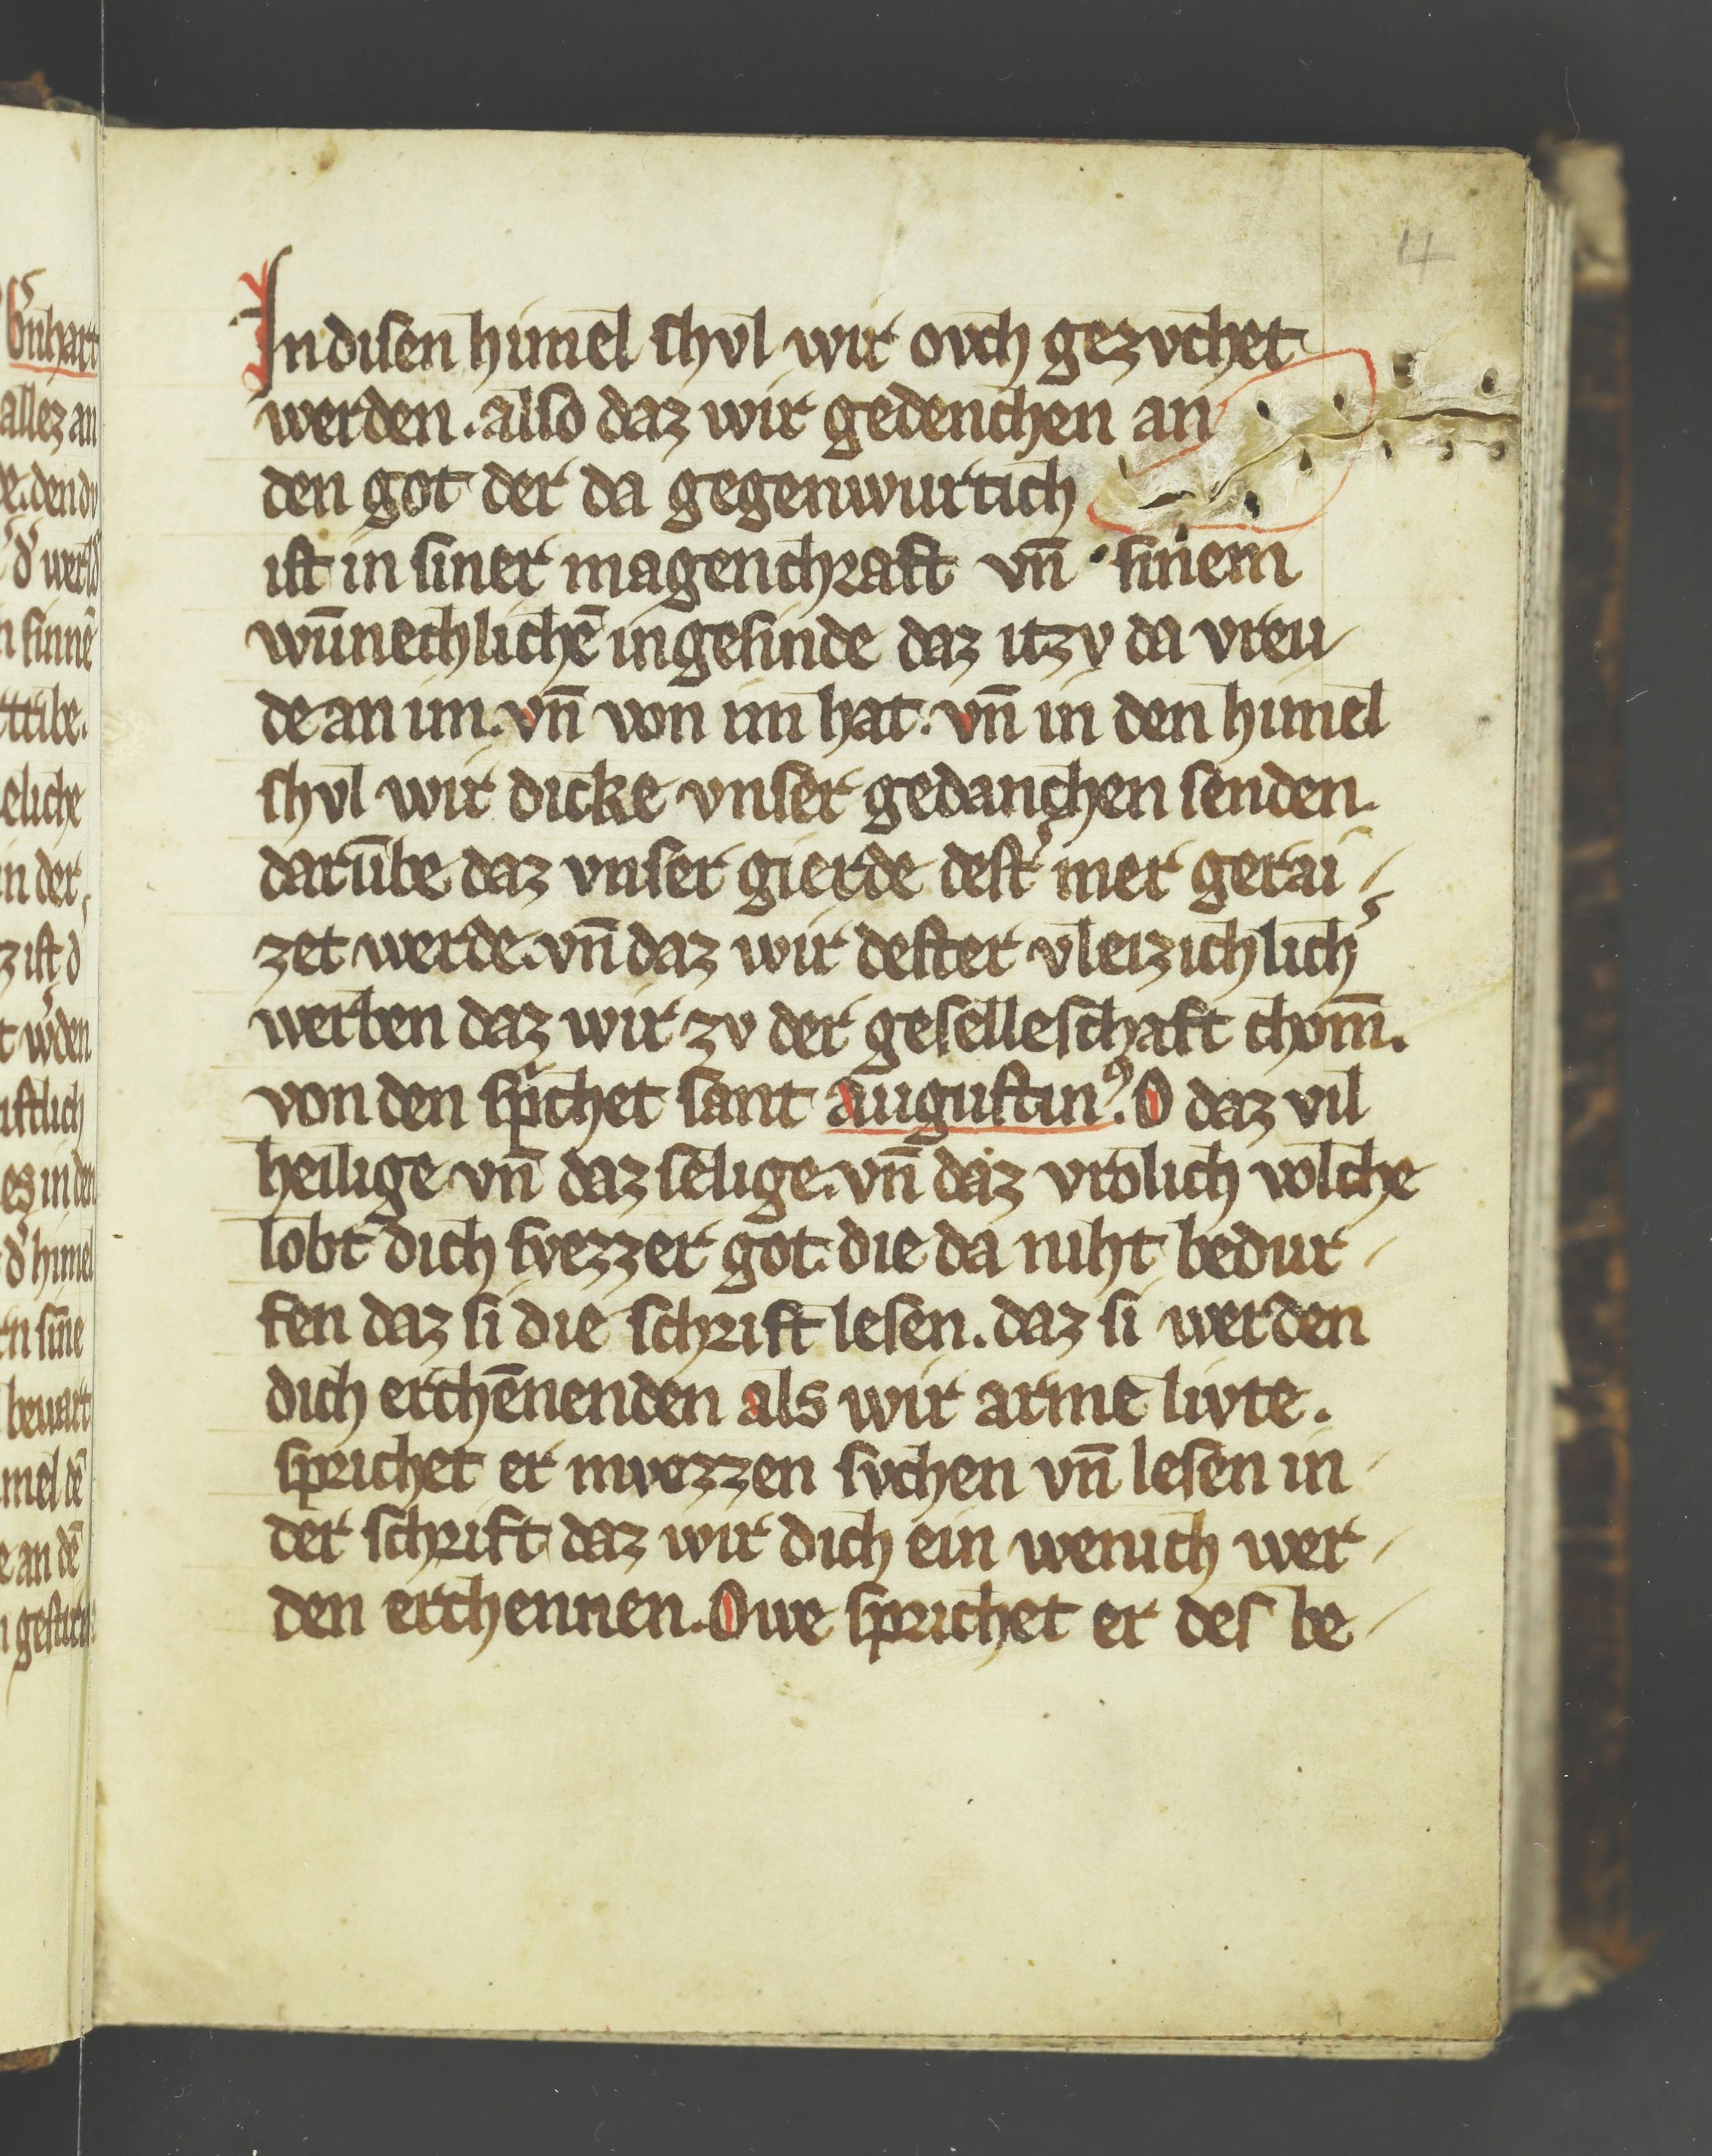 14
In disen himel shvl wir ovch gezvchet
werden. also daz wir gedenchen an
den got der da gegenwurtich
ist in siner magenchraft vn̄ sinem
wūnechlichē ingesinde daz itzv da vreu-
de an im. vn̄ von im hat. vn̄ in den himel
shvl wir dicke vnser gedanchen senden.
darūbe daz vnser gierde dest᾽ mer gerai-
zet werde. vn̄ daz wir dester vleizichlich᾽
werben daz wir zv der geselleschaft chom̄.
von den spͥchet sant augustinꝰ. O daz vil
heilige vn̄ daz selige. vn̄ daz vrolich volche
lobt dich svezzer got. die da niht bedur-
fen daz si die schrift lesen. daz si werden
dich erchēnenden als wir arme livte.
sprichet er mvezzen svchen vn̄ lesen in
der schrift daz wir dich ein wenich wer-
den erchennen. Owe sprichet er des be-